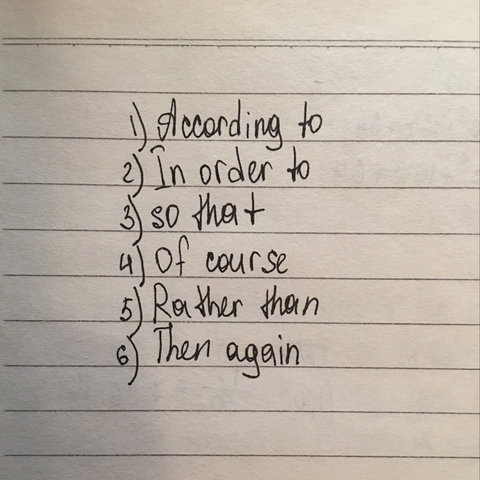 1) According to
2) In order to
3) so that
4) Of course
5) Rather than
6) Then again